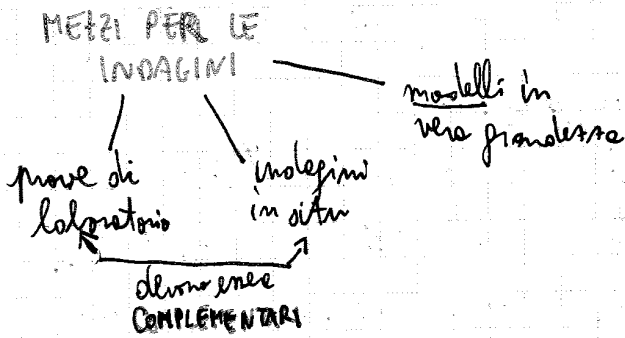 MEZZI PER LE
INDAGINI
modelli in
vera grandezza
prove di
laboratorio
indagini
in situ
devono essere
COMPLEMENTARI